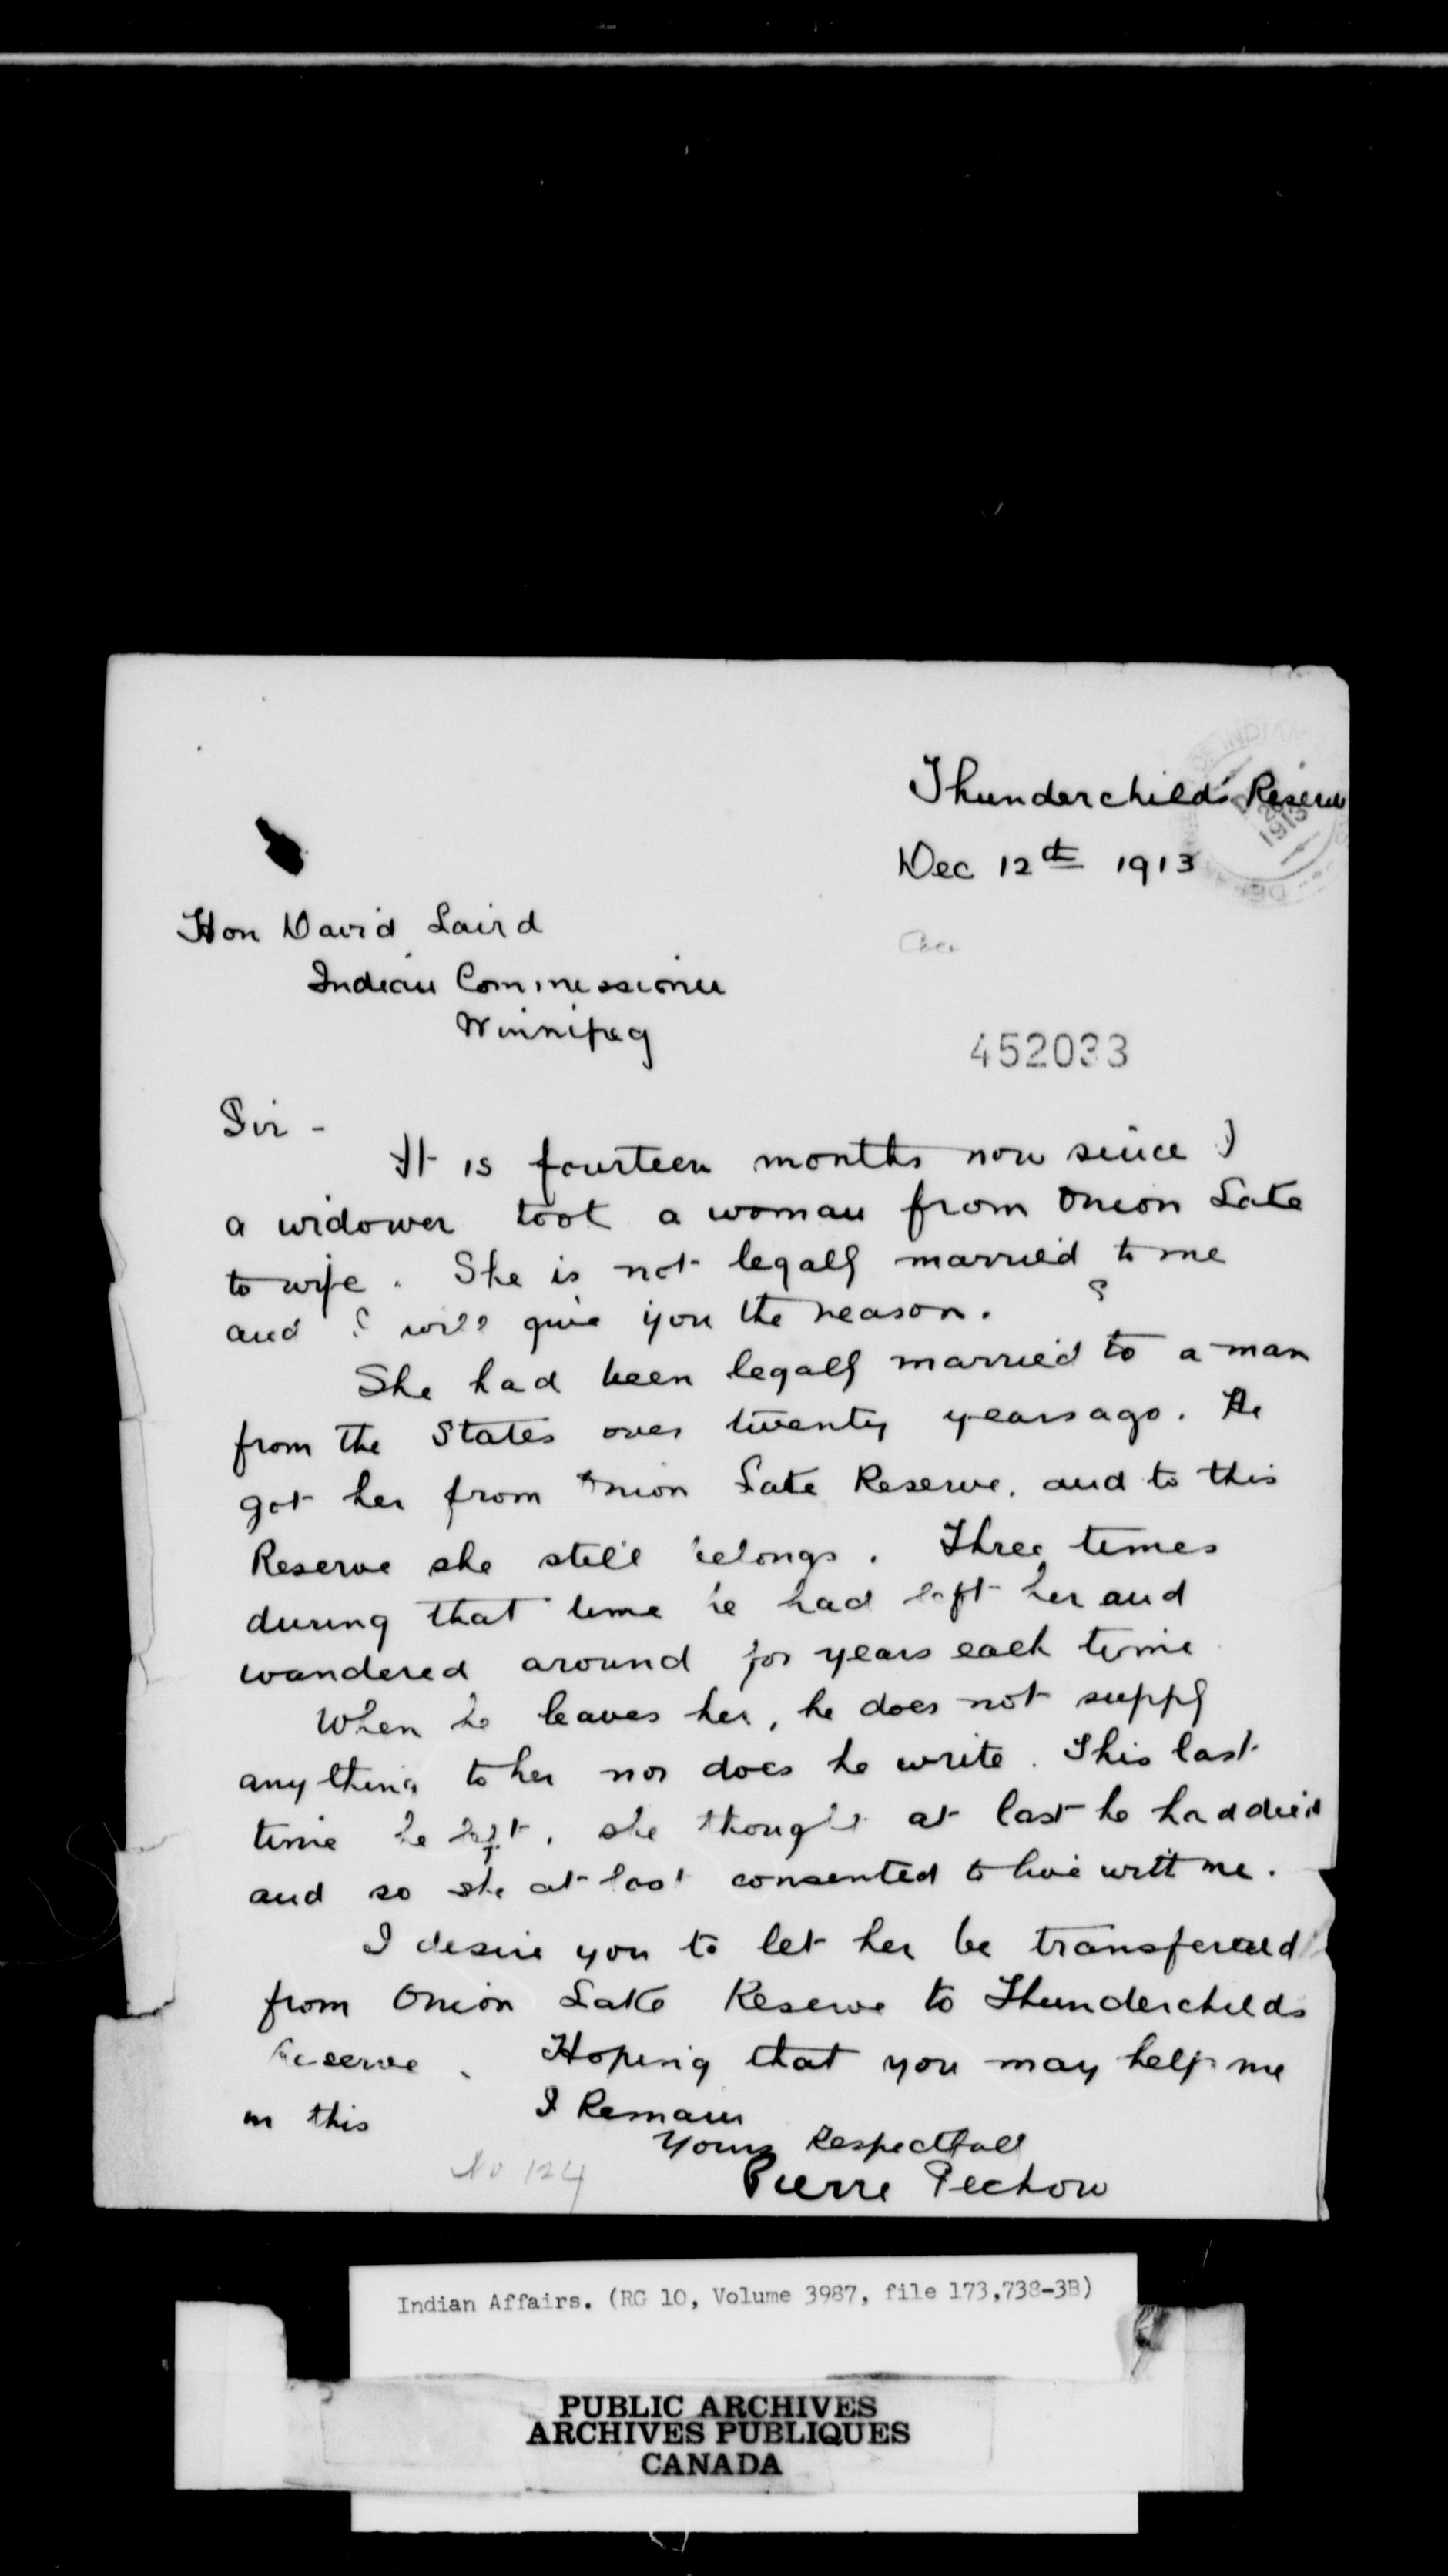 Thunderchilds Reserve
Dec 12th 1913
Hon David Laird
Indian Commissioner
Winnipeg
452033
Sir -
It is fourteen months now since I
a widower took a woman from Onion Lake
to wife. She is not legally married to me
and I will give you the reason.
She had been legally married to a man
from the States over twenty years ago. He
got her from Onion Lake Reserve. and to this
Reserve she still belongs. Three times
during that time he had left her and
wandered around for years each time
When he leaves her, he does not supply
anything to her nor does he write. This last
time he left, she thought at last he had died
and so she at last consented to live with me.
I desire you to let her be transfered
from Onion Lake Reserve to Thunderchilds
Reserve. Hoping that you may help me
in this I Remain
Yours Respectfull
Pierre Pechow
No 124
Indian Affairs. (RG 10, Volume 3987, file 173,738-3B)
PUBLIC ARCHIVES
ARCHIVES PUBLIQUES
CANADA